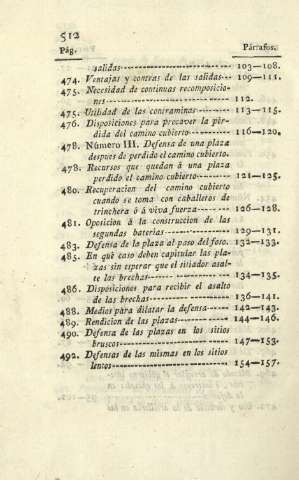 512
Pág. Párrafos.
salidas 103—108.
474. Ventajas y contras de las salidas 109—111.
475. Necesidad de continuas recomposicio-
nes 112.
475. Utilidad de las contraminas 113—115.
476. Disposiciones para precaver la pér-
dida del camino cubierto 116—120.
478. Número III. Defensa de una plaza
despues de perdido el camino cubierto.
478. Recursos que quedan á una plaza
perdido el camino cubierto 121—125.
480. Recuperacion del camino cubierto
cuando se toma con caballeros de
trinchera ó á viva fuerza 126—128.
481. Oposicion á la construccion de las
segundas baterias 129—131.
483. Defensa de la plaza al paso del foso. 132—133.
485. En qué caso deben capitular las pla-
zas sin esperar que el sitiador asal-
te las brechas 134—135.
486. Disposiciones para recibir el asalto
de las brechas 136—141.
488. Medios para dilatar la defensa 142—143.
489. Rendicion de las plazas 144—146.
490. Defensa de las plazas en los sitios
bruscos 147—153.
492. Defensas de las mismas en los sitios
lentos 154—157.